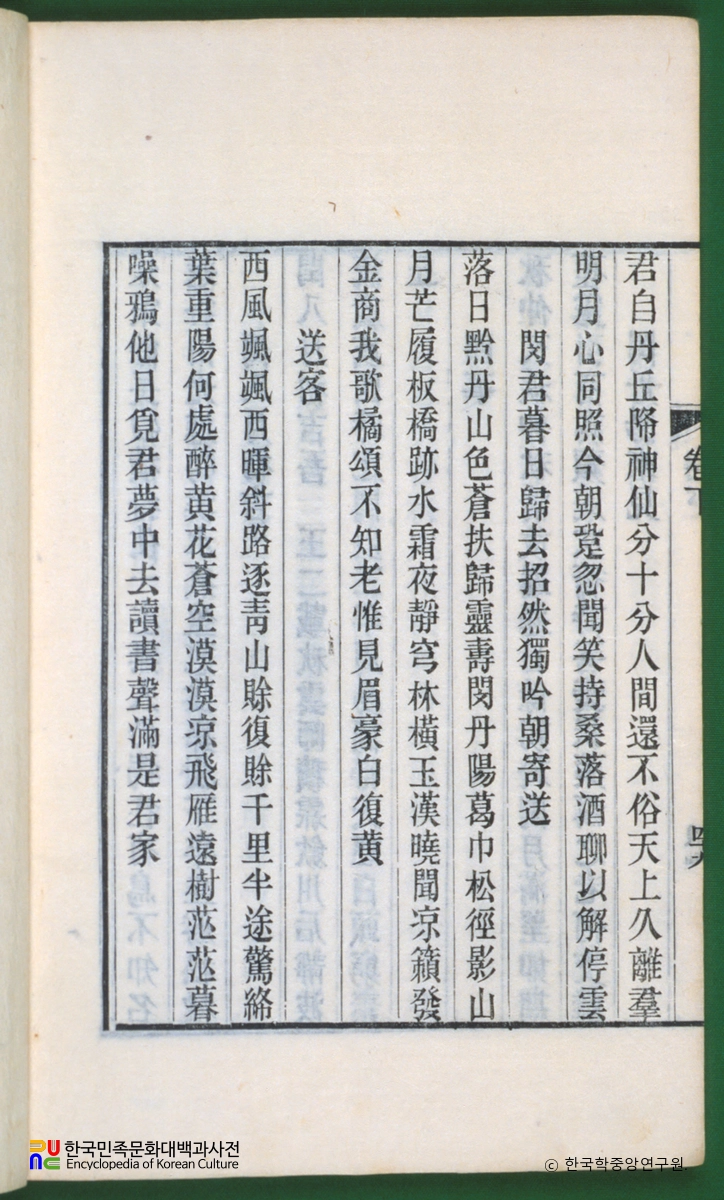 卷下
四九
君自丹丘降神仙分十分人間還不俗天上久離羣
明月心同照今朝跫忽聞笑持桑落酒聊以解停雲
閔君暮日歸去招然獨吟朝寄送
落日黙丹山色蒼扶歸靈壽閔丹陽葛巾松徑影山
月芒履板橋跡水霜夜靜穹林橫玉漢曉聞凉籟發
金商我歌橘頌不知老惟見眉豪白復黃
送客
西風颯颯西暉斜路逐靑山賖復賖千里半途驚絡
葉重陽何處醉黃花蒼空漠漠凉飛雁遠樹茫茫暮
噪鴉他日覓君夢中去讀書聲滿是君家
한국민족문화대백과사전
Encyclopedia of Korean Culture
© 한국학중앙연구원.